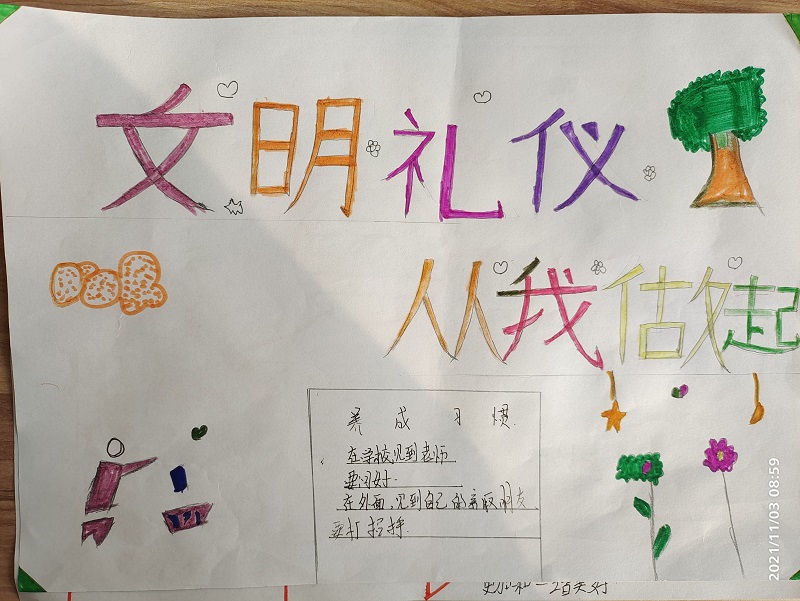 文明礼仪
从我做起
养成习惯.
在学校见到老师
要问好.
在外面,见到自己的亲戚朋友
要打招呼.
2021/11/03 08:59